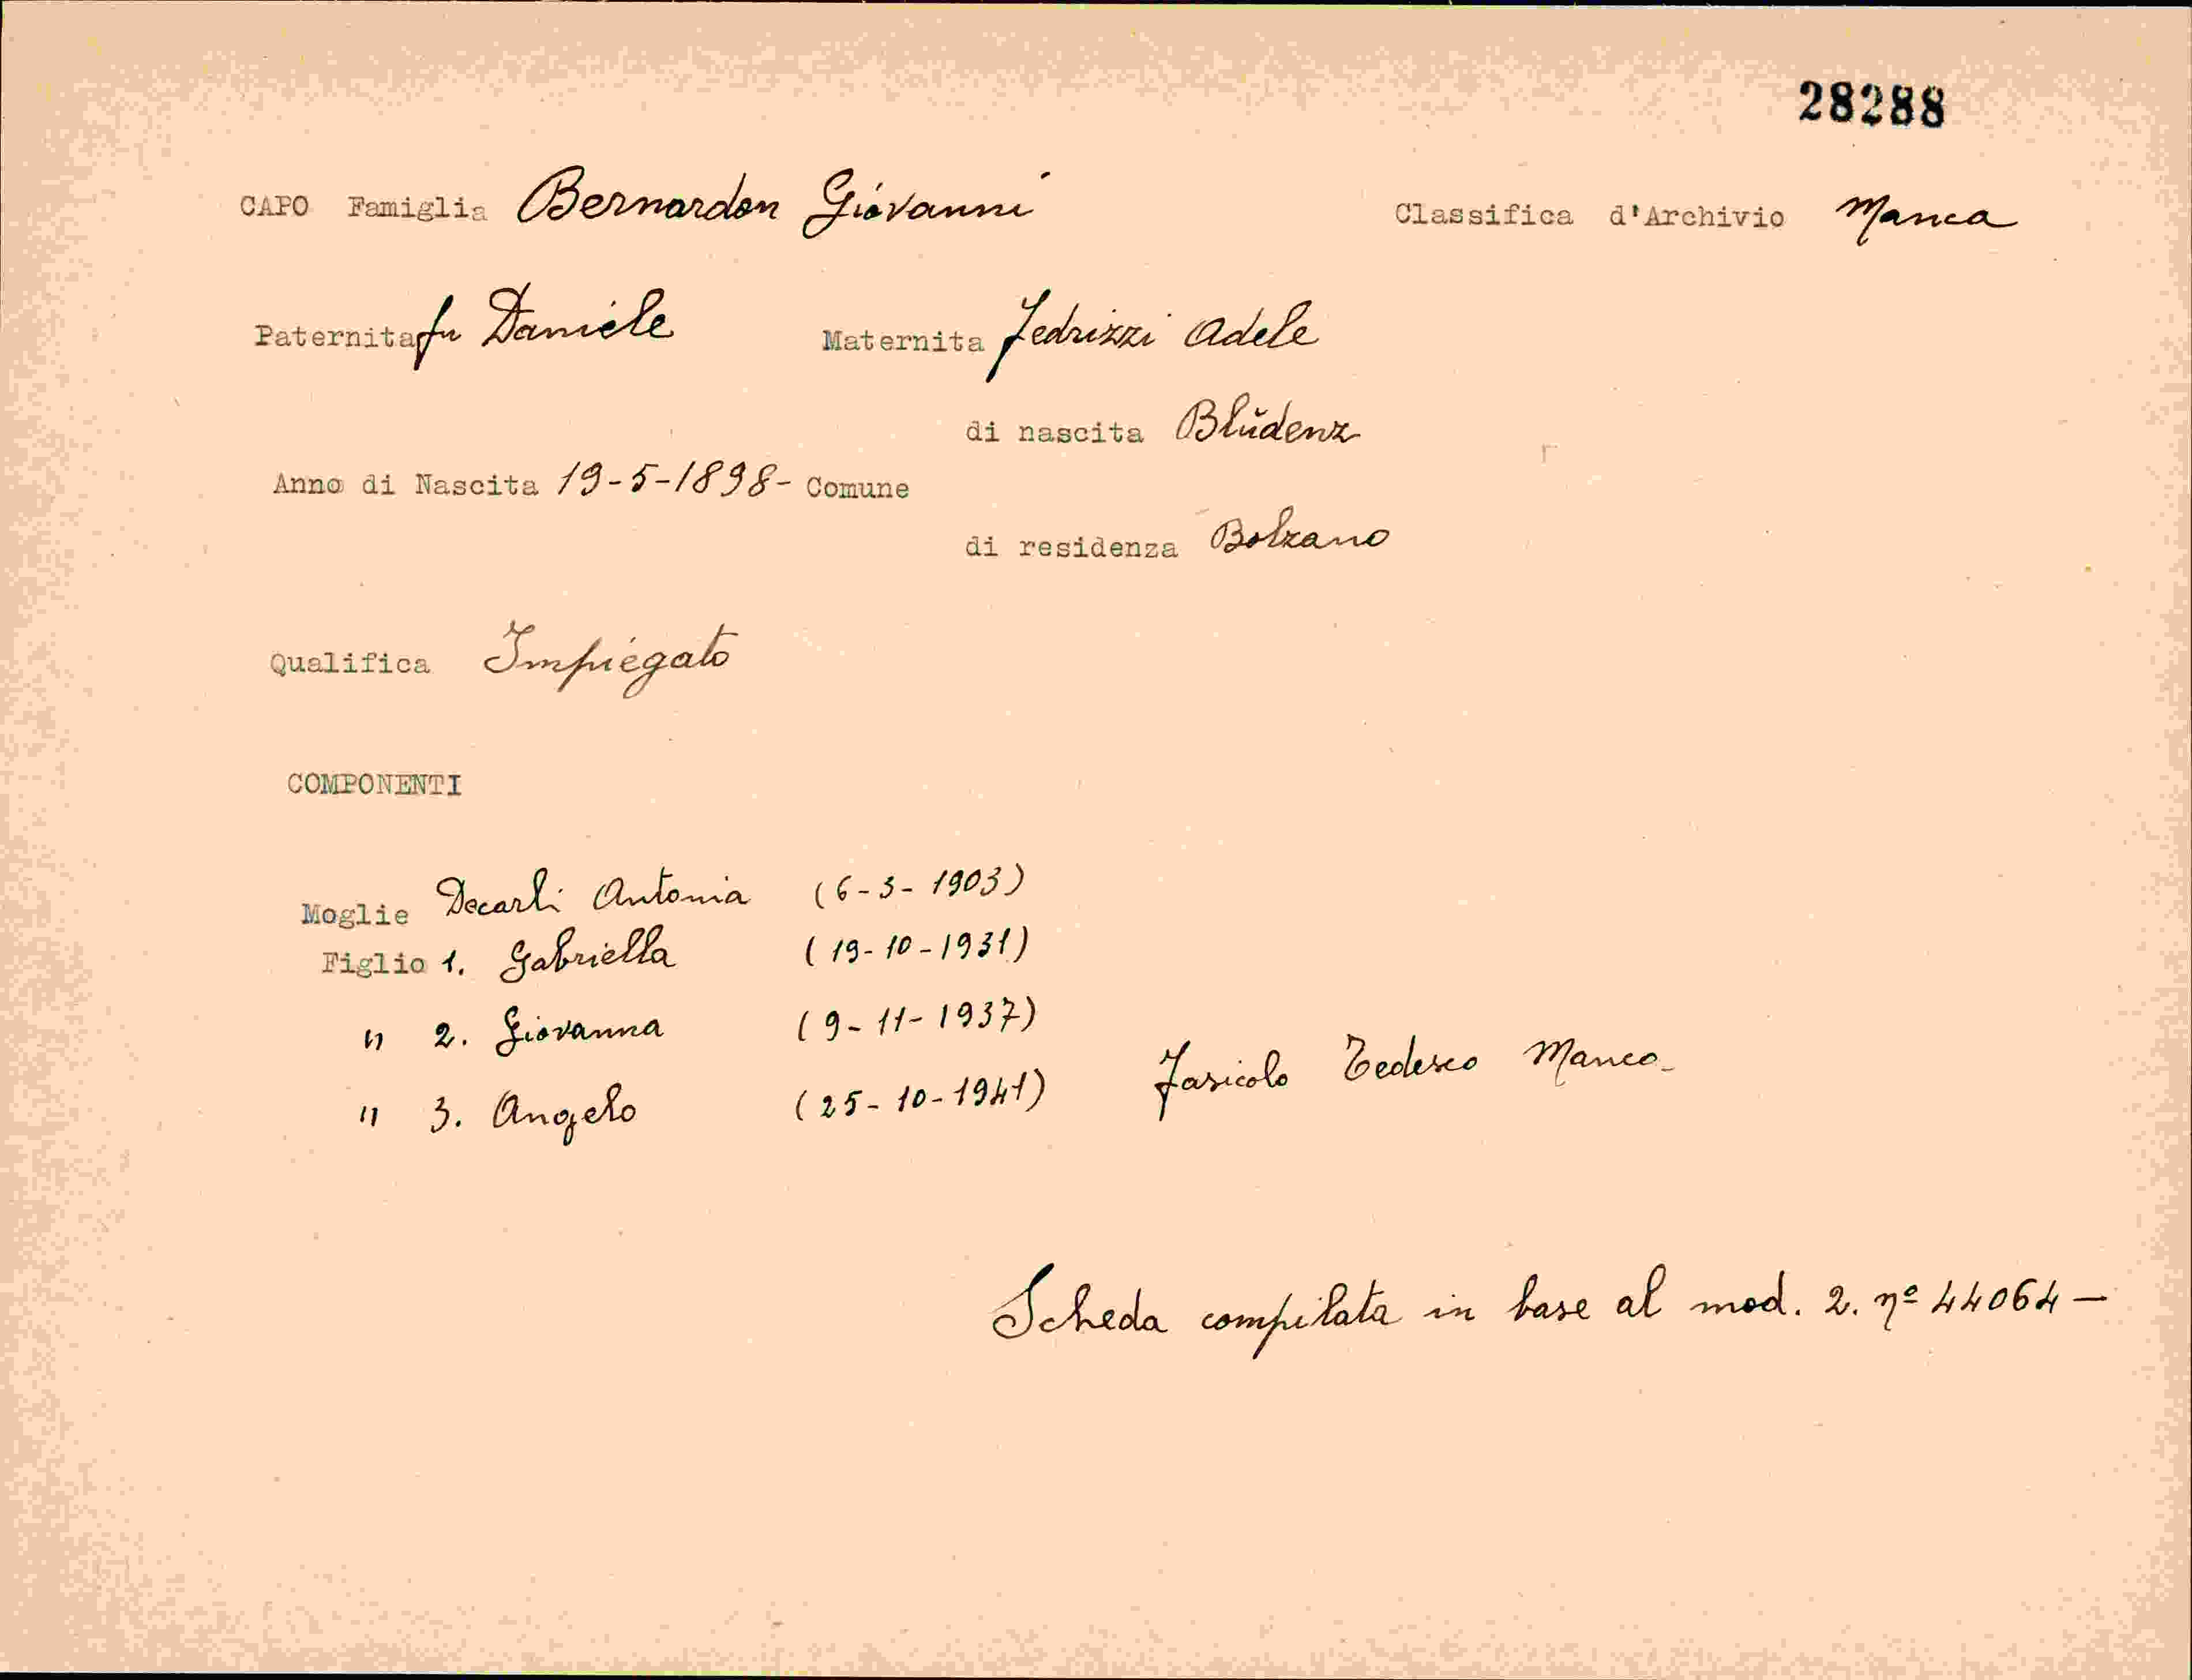 28288
CAPO Famiglia Bernardon Giovanni Classifica d'Archivio Manca
Paternita fu Daniele Maternita Fedrizzi Adele
di nascita Blŭdenz
Anno di Nascita 19-5-1898- Comune
di residenza Bolzano
Qualifica Impiegato
COMPONENTI
Moglie Decarli Antonia (6-3-1903)
Figlio 1. Gabriella (19-10-1931)
" 2. Giovanna (9-11-1937)
" 3. Angelo (25-10-1941) Fasicolo Tedesco Manca-
Scheda compilata in base al mod. 2. nº 44064-